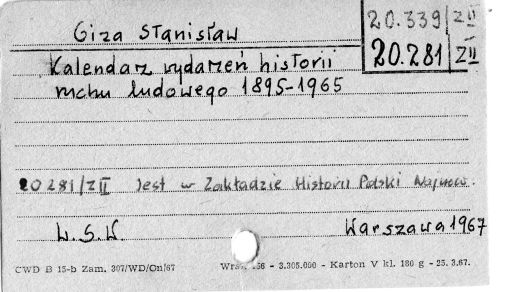 20.339/ZII
Giza Stanisław
20.281/ZII
Kalendarz wydarzeń historii
ruchu ludowego 1895-1965
20281/ZII Jest w Zakładzie Historii Polski Najnow.
L.S.W.
Warszawa 1967
CWD B 15-b Zam. 307/WD/On/67 - 3.305.000 - Karton V kl. 180 g - 25.3.67.